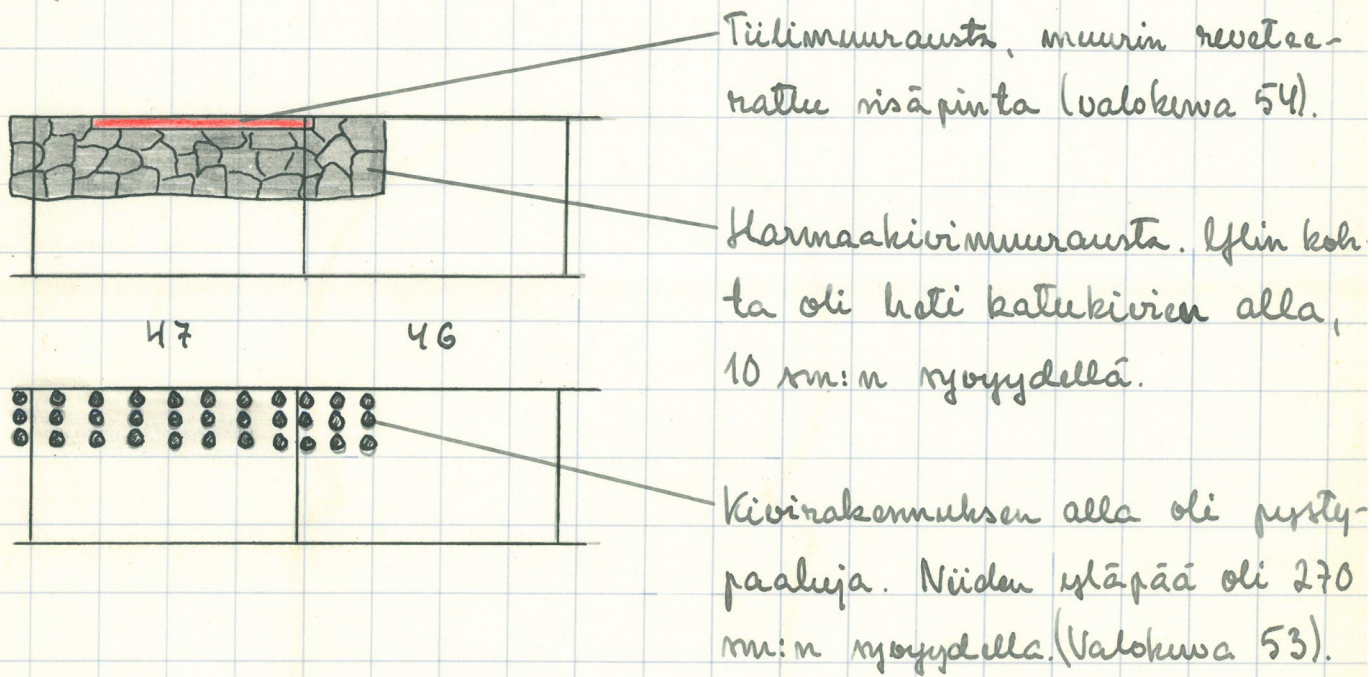 Tiilimuurausta, muurin revetee-
rattu sisäpinta (valokuva 54).
Harmaakivimuurausta. Ylin koh-
ta oli heti katukivien alla,
10 sm:n syvyydellä.
47 46
Kivirakennuksen alla oli pysty-
paaluja. Niiden yläpää oli 270
sm:n syvyydellä. (Valokuva 53).